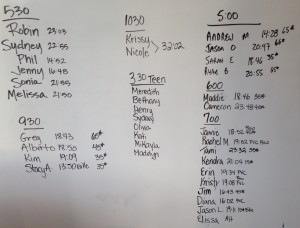 530
Robin 23:03
Sydney 22:55
Phil 14:52
Jenny 16:45
Sonia 21:55
Melissa 21:50
930
Greg 18:43 65#
Alberto 18:50 45#
Kim 19:09 35#
Stacy A. 35#
1030
Krissy
Nicole > 32:02
3:30 Teen
Meredith
Bethany
Jenny
Sydney
Olivia
Kati
Mikayla
Madelyn
5:00
ANDREW M 14:28 65#
JASON O 20:47 65#
SARAH E 18:46 35#
20:55 65#
600
Maddie 18:46 35#
Cameron 23:48
700
Jamie 18:52
Rachel M 19:52
Tami 23:32 35#
Kendra 21:04
Erin 19:34
Kristy 19:08
Jim 16:43
Diana 16:02
Jason L.
Elissa